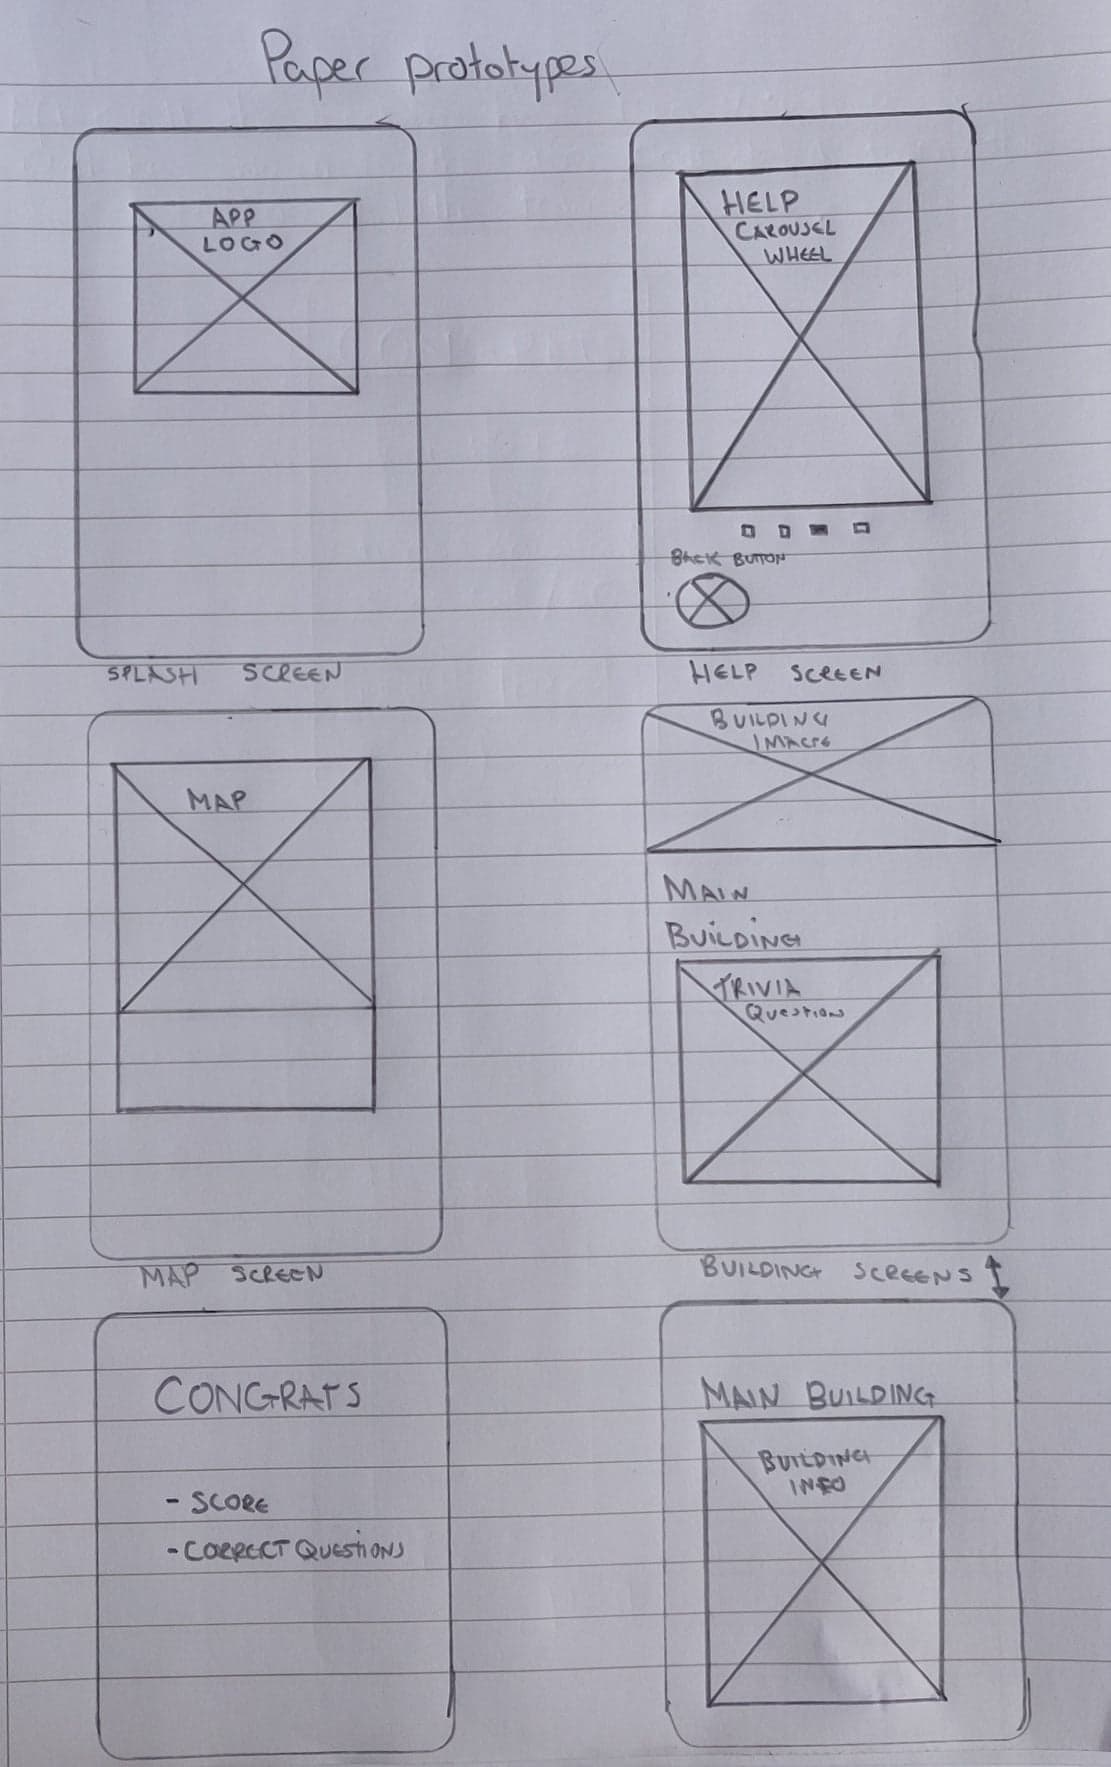 Paper prototypes
APP
LOGO
SPLASH SCREEN
HELP
CAROUSEL
WHEEL
BACK BUTTON
HELP SCREEN
MAP
MAP SCREEN
BUILDING
IMAGE
MAIN
BUILDING
TRIVIA
QUESTION
BUILDING SCREENS
CONGRATS
- SCORE
- CORRECT QUESTIONS
MAIN BUILDING
BUILDING
INFO